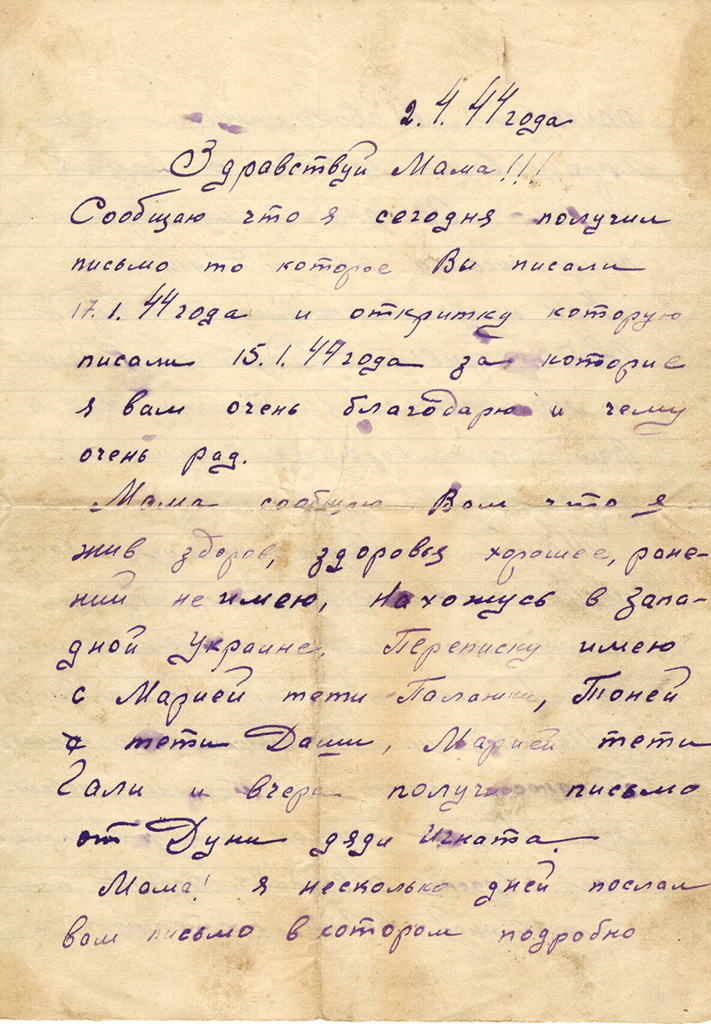 2.4.44 года
Здравствуй Мама!!!
Сообщаю что я сегодня получил
письмо то которое Вы писали
17.1.44 года и откритку которую
писали 15.1.44 года за которие
я вам очень благодарю и чему
очень рад.
Мама сообщаю Вам что я
жив здоров, здоровья хорошее, ране-
ний не имею, Нахожусь в Запа-
дной Украине, Переписку имею
с Марией тети Паланки, Тоней
тети Даши, Марией тети
Гали и вчера получил письмо
от Дуни дяди Игната.
Мама! я несколько дней послал
вам письмо в котором подробно